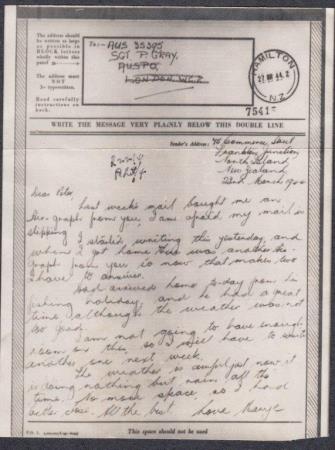 The address should
be written as large
as possible in
BLOCK letters
wholly within this
panel
The address must
NOT
be typewritten.
Read carefully
instructions on
back.
To:- AUS 35395
SGT P GRAY,
AUSPO,
LONDON WC2
HAMILTON
44
N.Z.
7541
WRITE THE MESSAGE VERY PLAINLY BELOW THIS DOUBLE LINE
Sender's Address: 46 Commerce Street
Frankton Junction
North Island
New Zealand
22nd March
Dear Peter,
Last weeks mail bought me an
Air-graph from you, I am afraid my mail is
slipping. I started writing this yesterday and
when I got home there was another Air-
graph from you so now that makes two
I have to answer.
Dad arrived home to-day from his
fishing holiday, and he had a great
time although the weather was not
too good.
I am not going to have enough
room on this, so I will have to write
another one next week.
The weather is awful just now it
is doing nothing but rain all the
time. No more space, so I had
better close. All the best Love
This space should not be used